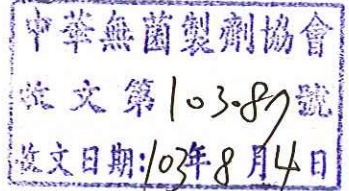 中華無菌製劑協會
收文第103.87號
收文日期:103年8月4日